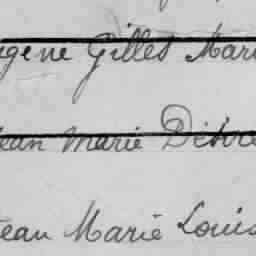 gène Gilles Mari
Jean Marie Désiré
Jean Marie Louis